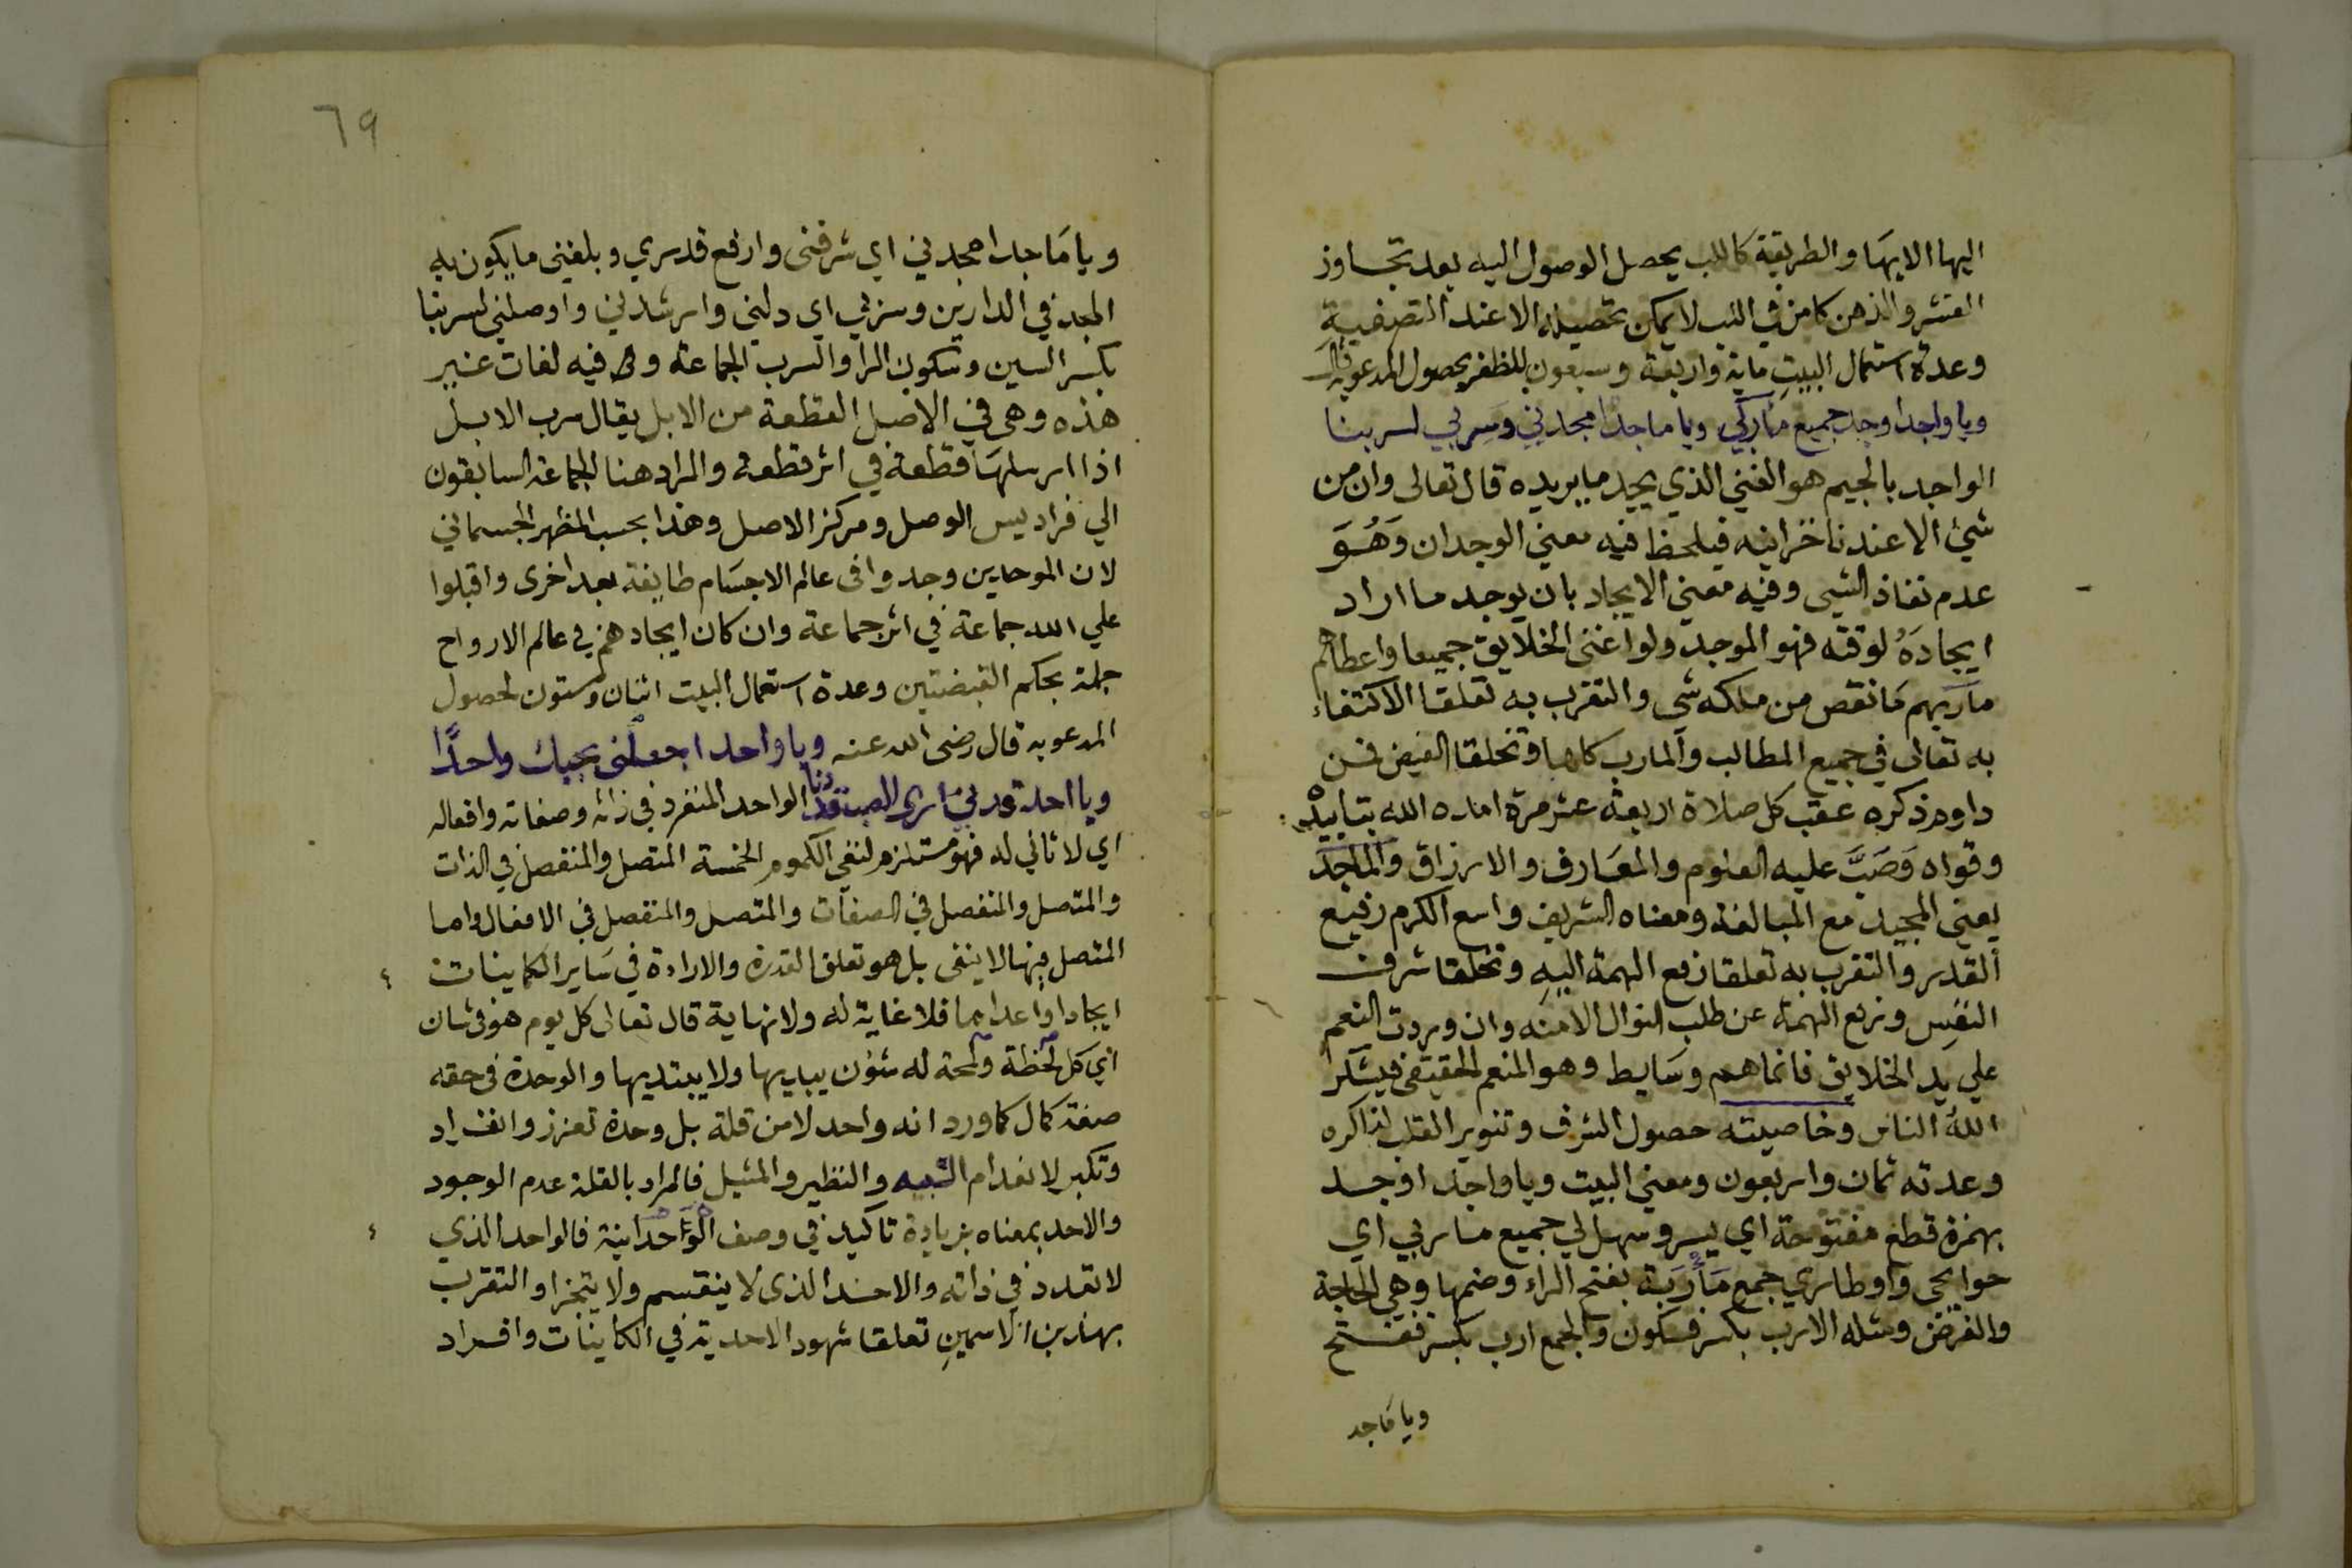 اليها الا بها والطريقة كاللب يحصل الوصول اليه بعد تجاوز
القشر والذهن كامن في اللب لا يمكن تحصيله الا عند التصفية
وعدة استعمال البيت ماية واربعة وسبعون للظفر بحصول المدعو به قال
ويا واجد اوجد جميع مآربي ويا ماجدا مجدني وسر بي لسربنا
الواجد بالجيم هو الغني الذي يجد ما يريده قال تعالى وان من
شيئ الا عندنا خزاينه فيلحظ فيه معني الوجدان وَهُوَ
عدم نفاذ الشيى وفيه معني الايجاد بان يوجد ما اراد
ايجادَهُ لوقته فهو الموجد ولو اغنى الخلايق جميعا واعطاهم
مآربهم مَا نقص من ملكه شي والتقرب به تعلقا الاكتفاء
به تعالى في جميع المطالب والمارب كلها وتخلقا الفيض فمن
داوم ذكره عقب كل صلاة اربعة عشر مرة امده الله بتاييد
وقواه وَصَبَّ عليه العلوم والمعَارف والارزاق والماجد
يعني المجيد مع المبالغة ومعناه الشريف واسع الكرم رفيع
القدر والتقرب به تعلقا رفع الهمة اليه وتخلقا شرف
النفس ورفع الهمة عن طلب النوال الا منه وان وردت النعم
علي يد الخلايق فانما هم وسَايط وهو المنعم الحقيقى فيشكر
اللهُ الناس وخاصيته حصول الشرف وتنوير القلب لذاكره
وعدته ثمان واربعون ومعني البيت ويا واجد اوجد
بهمزة قطع مفتوحة اي يسر وسهل لي جميع ماربي اي
حوايجى واوطاري جمع مَأرَبة بفتح الراء وضمها وهي الحاجة
والغرض ومثله الارب بكسر فسكون والجمع ارب بكسر ففتح
ويا مَاجد
٦٩
ويا مَاجدا مجدني اي شرفنى وارفع قدري وبلغني ما يكون به
المجد في الدارين وسر بي اي دلني وارشدني واوصلني لسربنا
بكسر السين وسكون الرا والسرب الجماعة و فيه لغات غير
هذه وهى في الاصل القطعة من الابل يقال سرب الابل
اذا ارسلهَا قطعة في اثر قطعة والمراد هنا الجماعة السابقون
الي فراديس الوصل ومركز الاصل وهذا بحسب المظهر الجسماني
لان الموحدين وجدوا فى عالم الاجسَام طايفة بعد اخرى واقبلوا
علي الله جماعة في اثر جماعة وان كان ايجادهم في عالم الارواح
جملة بحكم القبضتين وعدة استعمال البيت اثنان وستون لحصول
المدعو به قال رضى الله عنه ويا واحد اجعلنى بحبك واحدًا
ويا احد الواحد المنفرد في ذاته وصفاته وافعاله
اي لا ثاني له فهو مستلزم لنفى الكموم الخمسة المتصل والمنفصل في الذات
والمتصل والمنفصل في الصفات والمتصل والمنفصل في الافعال واما
المتصل فيها لا ينفى بل هو تعلق القدرة والارادة في سَاير الكاينات
ايجادا واعداما فلا غاية له ولا نهاية قال تعالى كل يوم هو فى شان
اي كل لحظة ولمحة له شئون يبديها ولا يبتديها والوحدة فى حقه
صفة كمال كما ورد انه واحد لا من قلة بل وحدة تعزز وانفراد
وتكبر لانعدام الشبيه والنظير والمثيل فالمراد بالقلة عدم الوجود
والاحد بمعناه بزيادة تاكيد في وصف الوَاحدانية فالواحد الذي
لا تعدد في ذاته والاحد الذى لا ينقسم ولا يتجزا والتقرب
بهذين الاسمين تعلقا شهود الاحدية في الكاينات وافراد